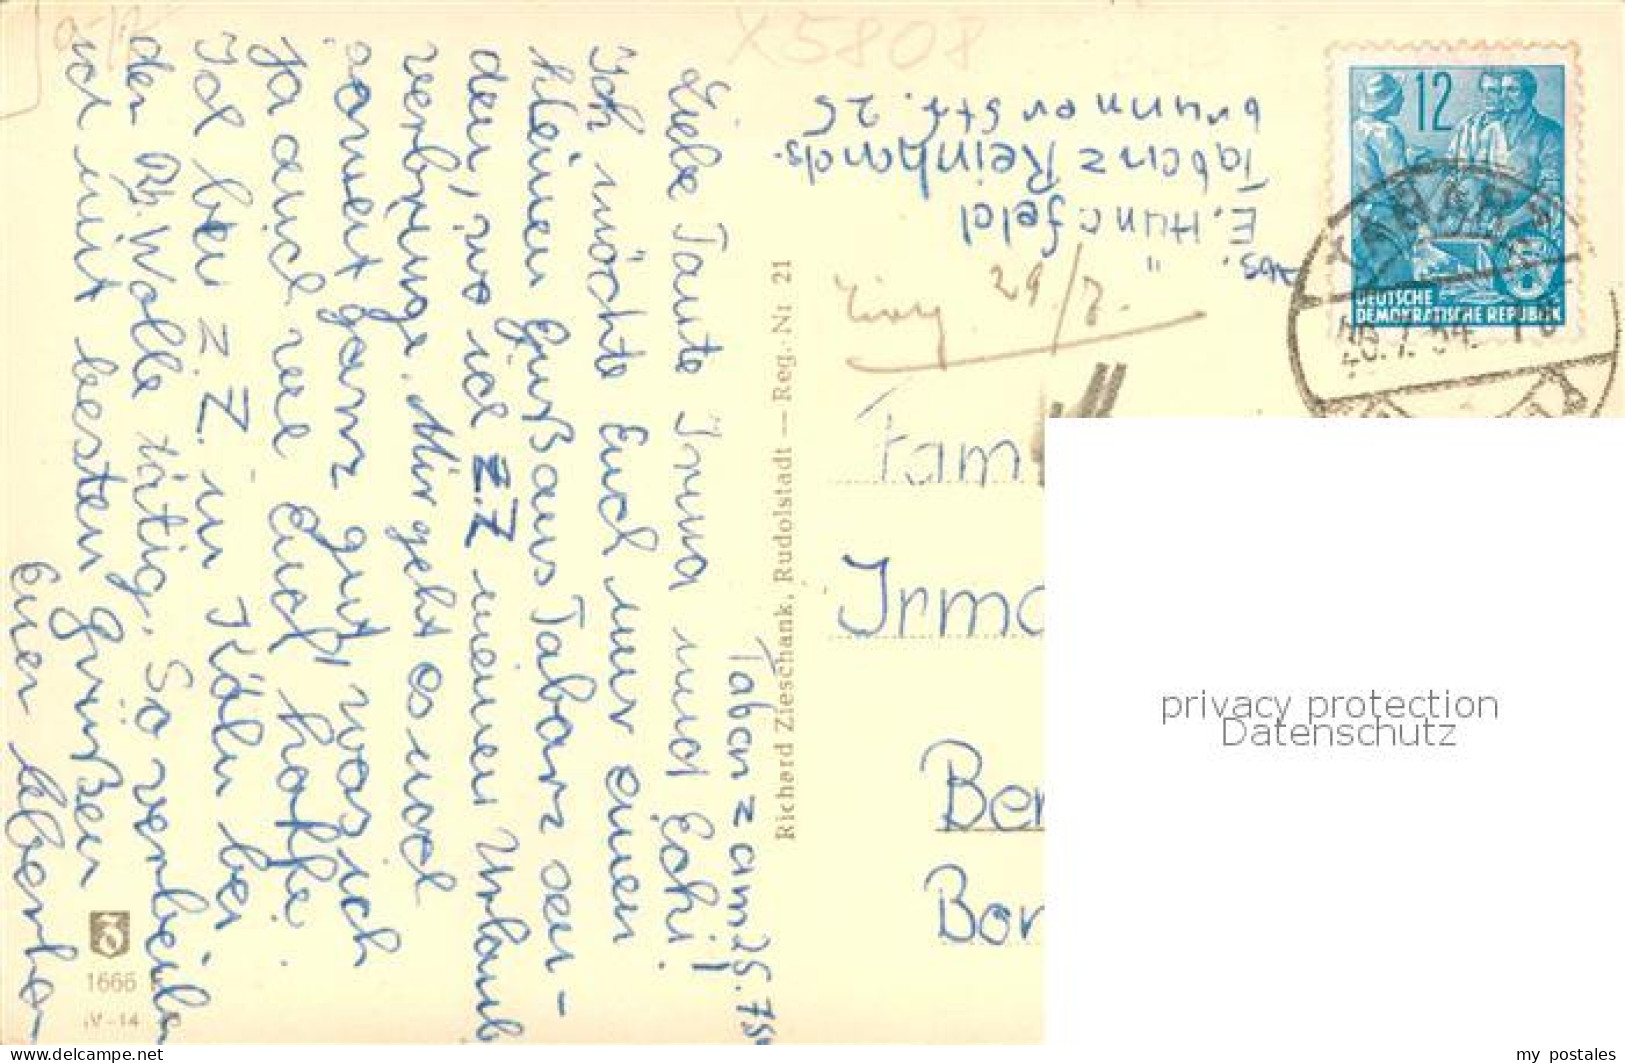 X5808
Tabarz am 25.7.54
Liebe Tante Irma und Echi!
Ich möchte Euch nur einen
kleinen Gruß aus Tabarz sen-
den, wo ich z.Z meinen Urlaub
verbringe. Mir geht es noch
soweit ganz gut, was ich
ja auch von Euch hoffe.
Ich bin z.Z. in Köln bei
der Wolle tätig. So verbleibe
ich mit besten Grüßen
Euer
1666
IV-14
Richard Zieschank, Rudolstadt — Reg.-Nr 21
Abs. E. Hünefeld
Tabarz Reinhards-
brunner Str. 26
29/7.
12
DEUTSCHE
DEMOKRATISCHE REPUBLIK
26.7.54
Fam
Irma
Ber
Bor
privacy protection
Datenschutz
www.delcampe.net
my_postales